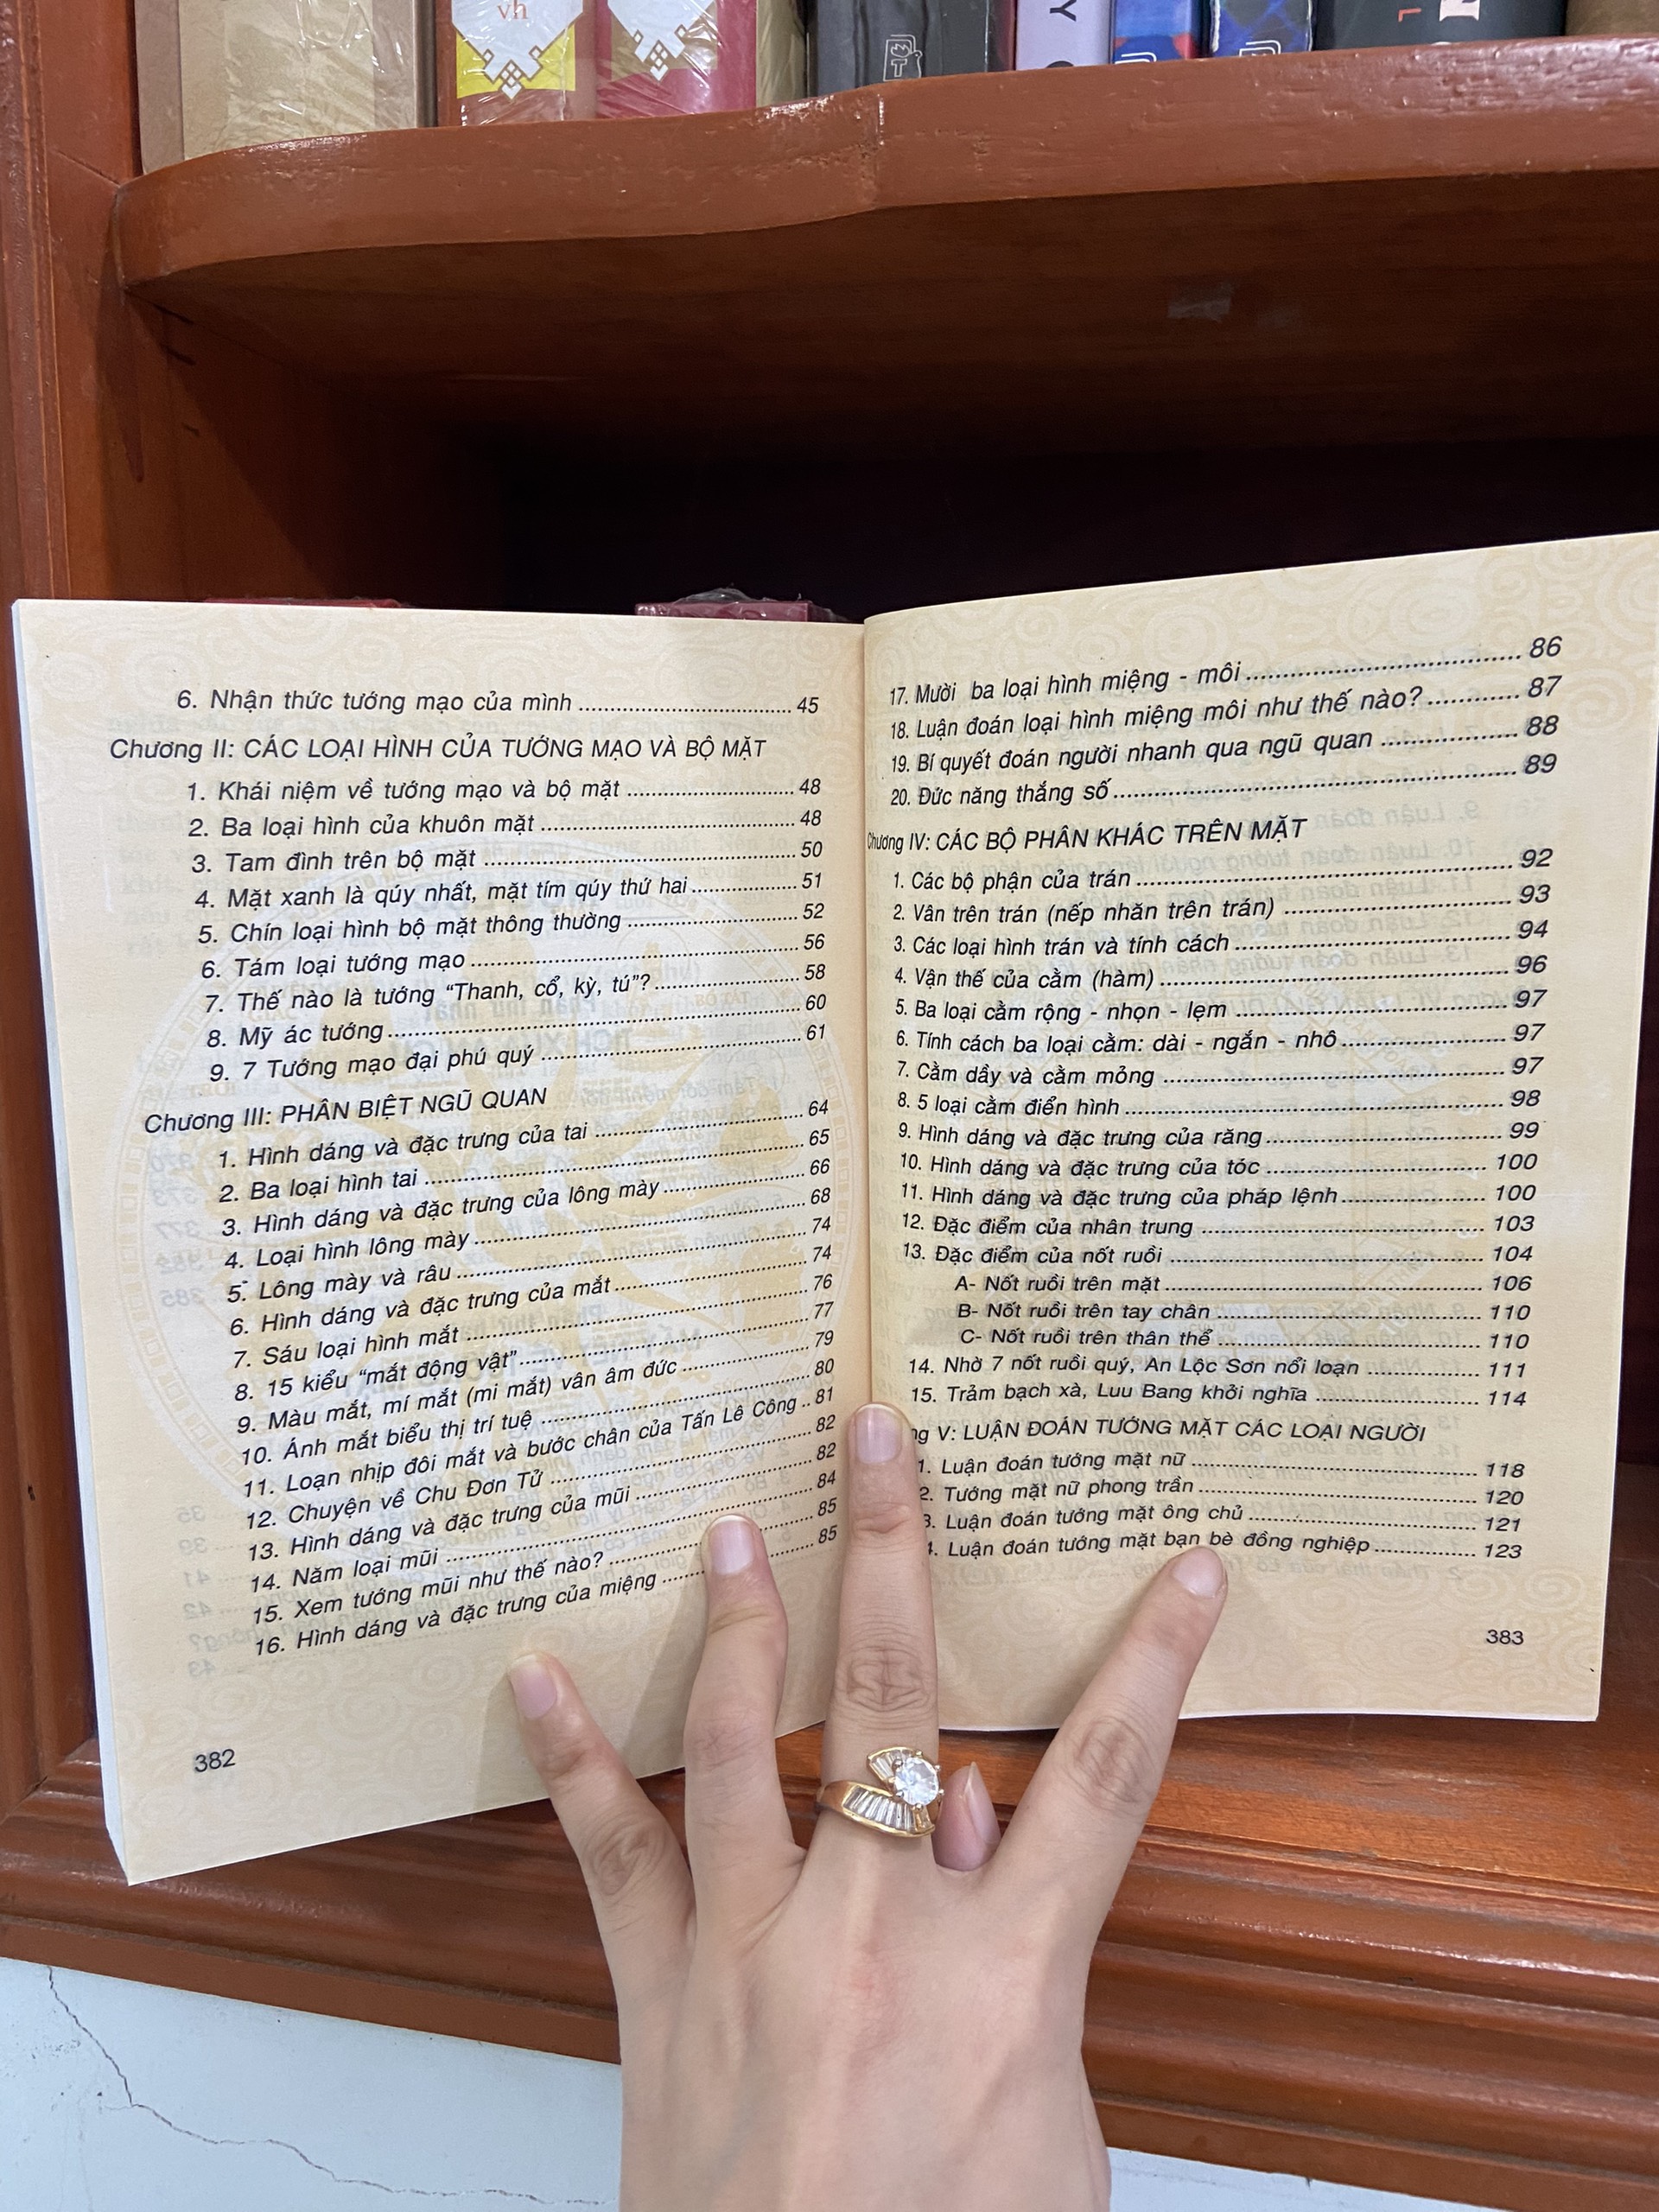 vh
6. Nhận thức tướng mạo của mình ........ 45
Chương II: CÁC LOẠI HÌNH CỦA TƯỚNG MẠO VÀ BỘ MẶT
1. Khái niệm về tướng mạo và bộ mặt ........ 48
2. Ba loại hình của khuôn mặt ........ 48
3. Tam đình trên bộ mặt ........ 50
4. Mặt xanh là qúy nhất, mặt tím qúy thứ hai ........ 51
5. Chín loại hình bộ mặt thông thường ........ 52
6. Tám loại tướng mạo ........ 56
7. Thế nào là tướng “Thanh, cổ, kỳ, tú”? ........ 58
8. Mỹ ác tướng ........ 60
9. 7 Tướng mạo đại phú quý ........ 61
Chương III: PHÂN BIỆT NGŨ QUAN
1. Hình dáng và đặc trưng của tai ........ 64
2. Ba loại hình tai ........ 65
3. Hình dáng và đặc trưng của lông mày ........ 66
4. Loại hình lông mày ........ 68
5. Lông mày và râu ........ 74
6. Hình dáng và đặc trưng của mắt ........ 74
7. Sáu loại hình mắt ........ 76
8. 15 kiểu “mắt động vật” ........ 77
9. Màu mắt, mí mắt (mi mắt) vân âm đức ........ 79
10. Ánh mắt biểu thị trí tuệ ........ 80
11. Loạn nhịp đôi mắt và bước chân của Tấn Lê Công .. 81
12. Chuyện về Chu Đơn Tử ........ 82
13. Hình dáng và đặc trưng của mũi ........ 82
14. Năm loại mũi ........ 84
15. Xem tướng mũi như thế nào? ........ 85
16. Hình dáng và đặc trưng của miệng ........ 85
382
17. Mười ba loại hình miệng - môi ........ 86
18. Luận đoán loại hình miệng môi như thế nào? ........ 87
19. Bí quyết đoán người nhanh qua ngũ quan ........ 88
20. Đức năng thắng số ........ 89
Chương IV: CÁC BỘ PHÂN KHÁC TRÊN MẶT
1. Các bộ phận của trán ........ 92
2. Vân trên trán (nếp nhăn trên trán) ........ 93
3. Các loại hình trán và tính cách ........ 94
4. Vận thế của cằm (hàm) ........ 96
5. Ba loại cằm rộng - nhọn - lẹm ........ 97
6. Tính cách ba loại cằm: dài - ngắn - nhô ........ 97
7. Cằm dầy và cằm mỏng ........ 97
8. 5 loại cằm điển hình ........ 98
9. Hình dáng và đặc trưng của răng ........ 99
10. Hình dáng và đặc trưng của tóc ........ 100
11. Hình dáng và đặc trưng của pháp lệnh ........ 100
12. Đặc điểm của nhân trung ........ 103
13. Đặc điểm của nốt ruồi ........ 104
A- Nốt ruồi trên mặt ........ 106
B- Nốt ruồi trên tay chân ........ 110
C- Nốt ruồi trên thân thể ........ 110
14. Nhờ 7 nốt ruồi quý, An Lộc Sơn nổi loạn ........ 111
15. Trảm bạch xà, Lưu Bang khởi nghĩa ........ 114
ng V: LUẬN ĐOÁN TƯỚNG MẶT CÁC LOẠI NGƯỜI
1. Luận đoán tướng mặt nữ ........ 118
2. Tướng mặt nữ phong trần ........ 120
3. Luận đoán tướng mặt ông chủ ........ 121
4. Luận đoán tướng mặt bạn bè đồng nghiệp ........ 123
383